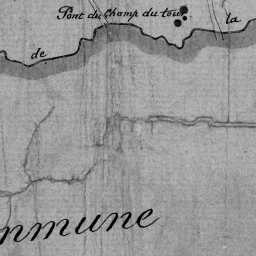 Pont du Champ du tour
la
de
mmune